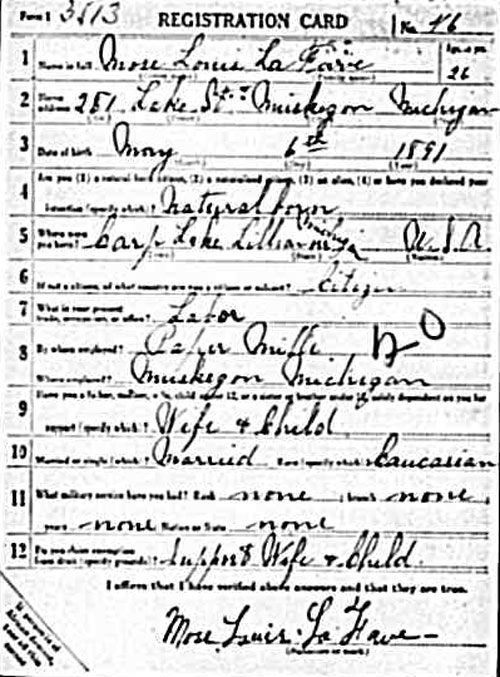 Form 1 3813 REGISTRATION CARD No. 46
1 Name in full Mose Louis La Fave Age, in yrs. 26
2 Home address 281 Lake St. Muskegon Michigan
3 Date of birth May 6th 1891
4 Are you (1) a natural born citizen, (2) a naturalized citizen, (3) an alien, (4) or have you declared your
intention (specify which)? Natural born
5 Where were you born? Carp Lake Mich U.S.A.
6 If not a citizen, of what country are you a citizen or subject? Citizen
7 What is your present trade, occupation, or office? Labor
8 By whom employed? Paper Mills
Where employed? Muskegon Michigan
9 Have you a father, mother, wife, child under 12, or a sister or brother under 12, solely dependent on you for
support (specify which)? Wife & Child
10 Married or single (which)? Married Race (specify which)? Caucasian
11 What military service have you had? Rank none ; branch none ;
years none Nation or State none
12 Do you claim exemption from draft (specify grounds)? Support Wife & Child.
I affirm that I have verified above answers and that they are true.
Mose Louis La Fave
(Signature or mark)